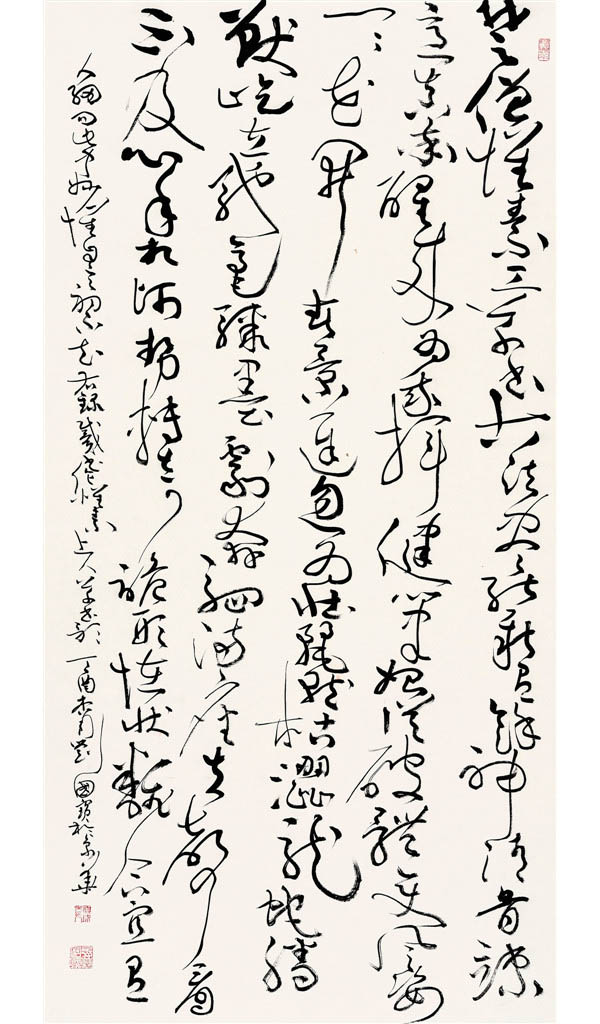 楚僧懷素工草書古法盡能新有餘神清骨竦
意真率醉來為我揮健筆始從破體變風姿
一一花開春景遲忽為壯麗就枯澀龍蛇騰
獸屹立馳毫驟墨劇奔駟滿座失聲看
不及心手相師勢轉奇詭形怪狀翻合宜
人細問此中妙懷自言初不知右錄戴叔倫懷素上人草書歌丁酉月劉國寶於京華